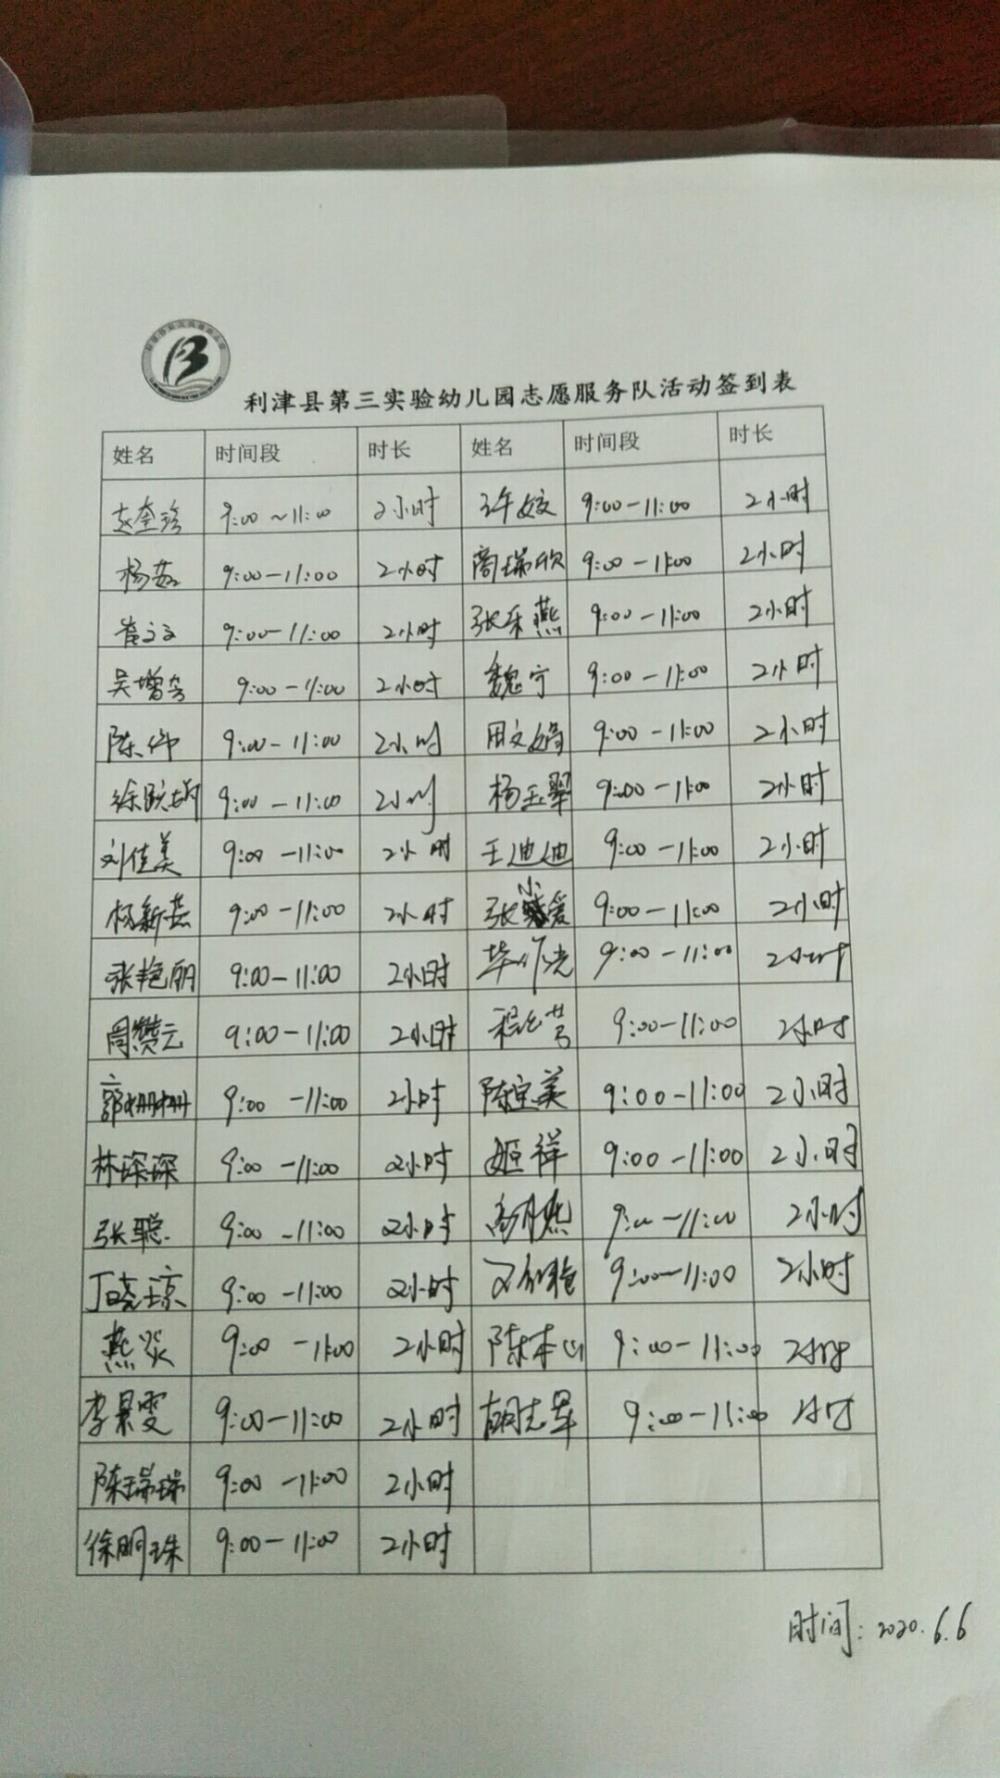 利津县第三实验幼儿园志愿服务队活动签到表
姓名 时间段 时长 姓名 时间段 时长
赵奎珍 9:00~11:00 2小时 许姣 9:00-11:00 2小时
杨茹 9:00-11:00 2小时 商瑞欣 9:00-11:00 2小时
崔文文 9:00-11:00 2小时 张乐燕 9:00-11:00 2小时
吴增芳 9:00-11:00 2小时 魏宁 9:00-11:00 2小时
陈伟 9:00-11:00 2小时 周文娟 9:00-11:00 2小时
徐 9:00-11:00 2小时 杨玉翠 9:00-11:00 2小时
刘佳美 9:00-11:00 2小时 王迪迪 9:00-11:00 2小时
杨新燕 9:00-11:00 2小时 张小爱 9:00-11:00 2小时
张艳丽 9:00-11:00 2小时 毕 9:00-11:00 2小时
周赞云 9:00-11:00 2小时 程 9:00-11:00 2小时
郭珊珊 9:00-11:00 2小时 陈宝美 9:00-11:00 2小时
林琛琛 9:00-11:00 2小时 姬祥 9:00-11:00 2小时
张聪 9:00-11:00 2小时 高月 9:00-11:00 2小时
丁晓琼 9:00-11:00 2小时 9:00-11:00 2小时
燕炎 9:00-11:00 2小时 陈本 9:00-11:00 2小时
李景雯 9:00-11:00 2小时 胡志军 9:00-11:00 2小时
陈瑞瑞 9:00-11:00 2小时
徐明珠 9:00-11:00 2小时
时间:2020.6.6